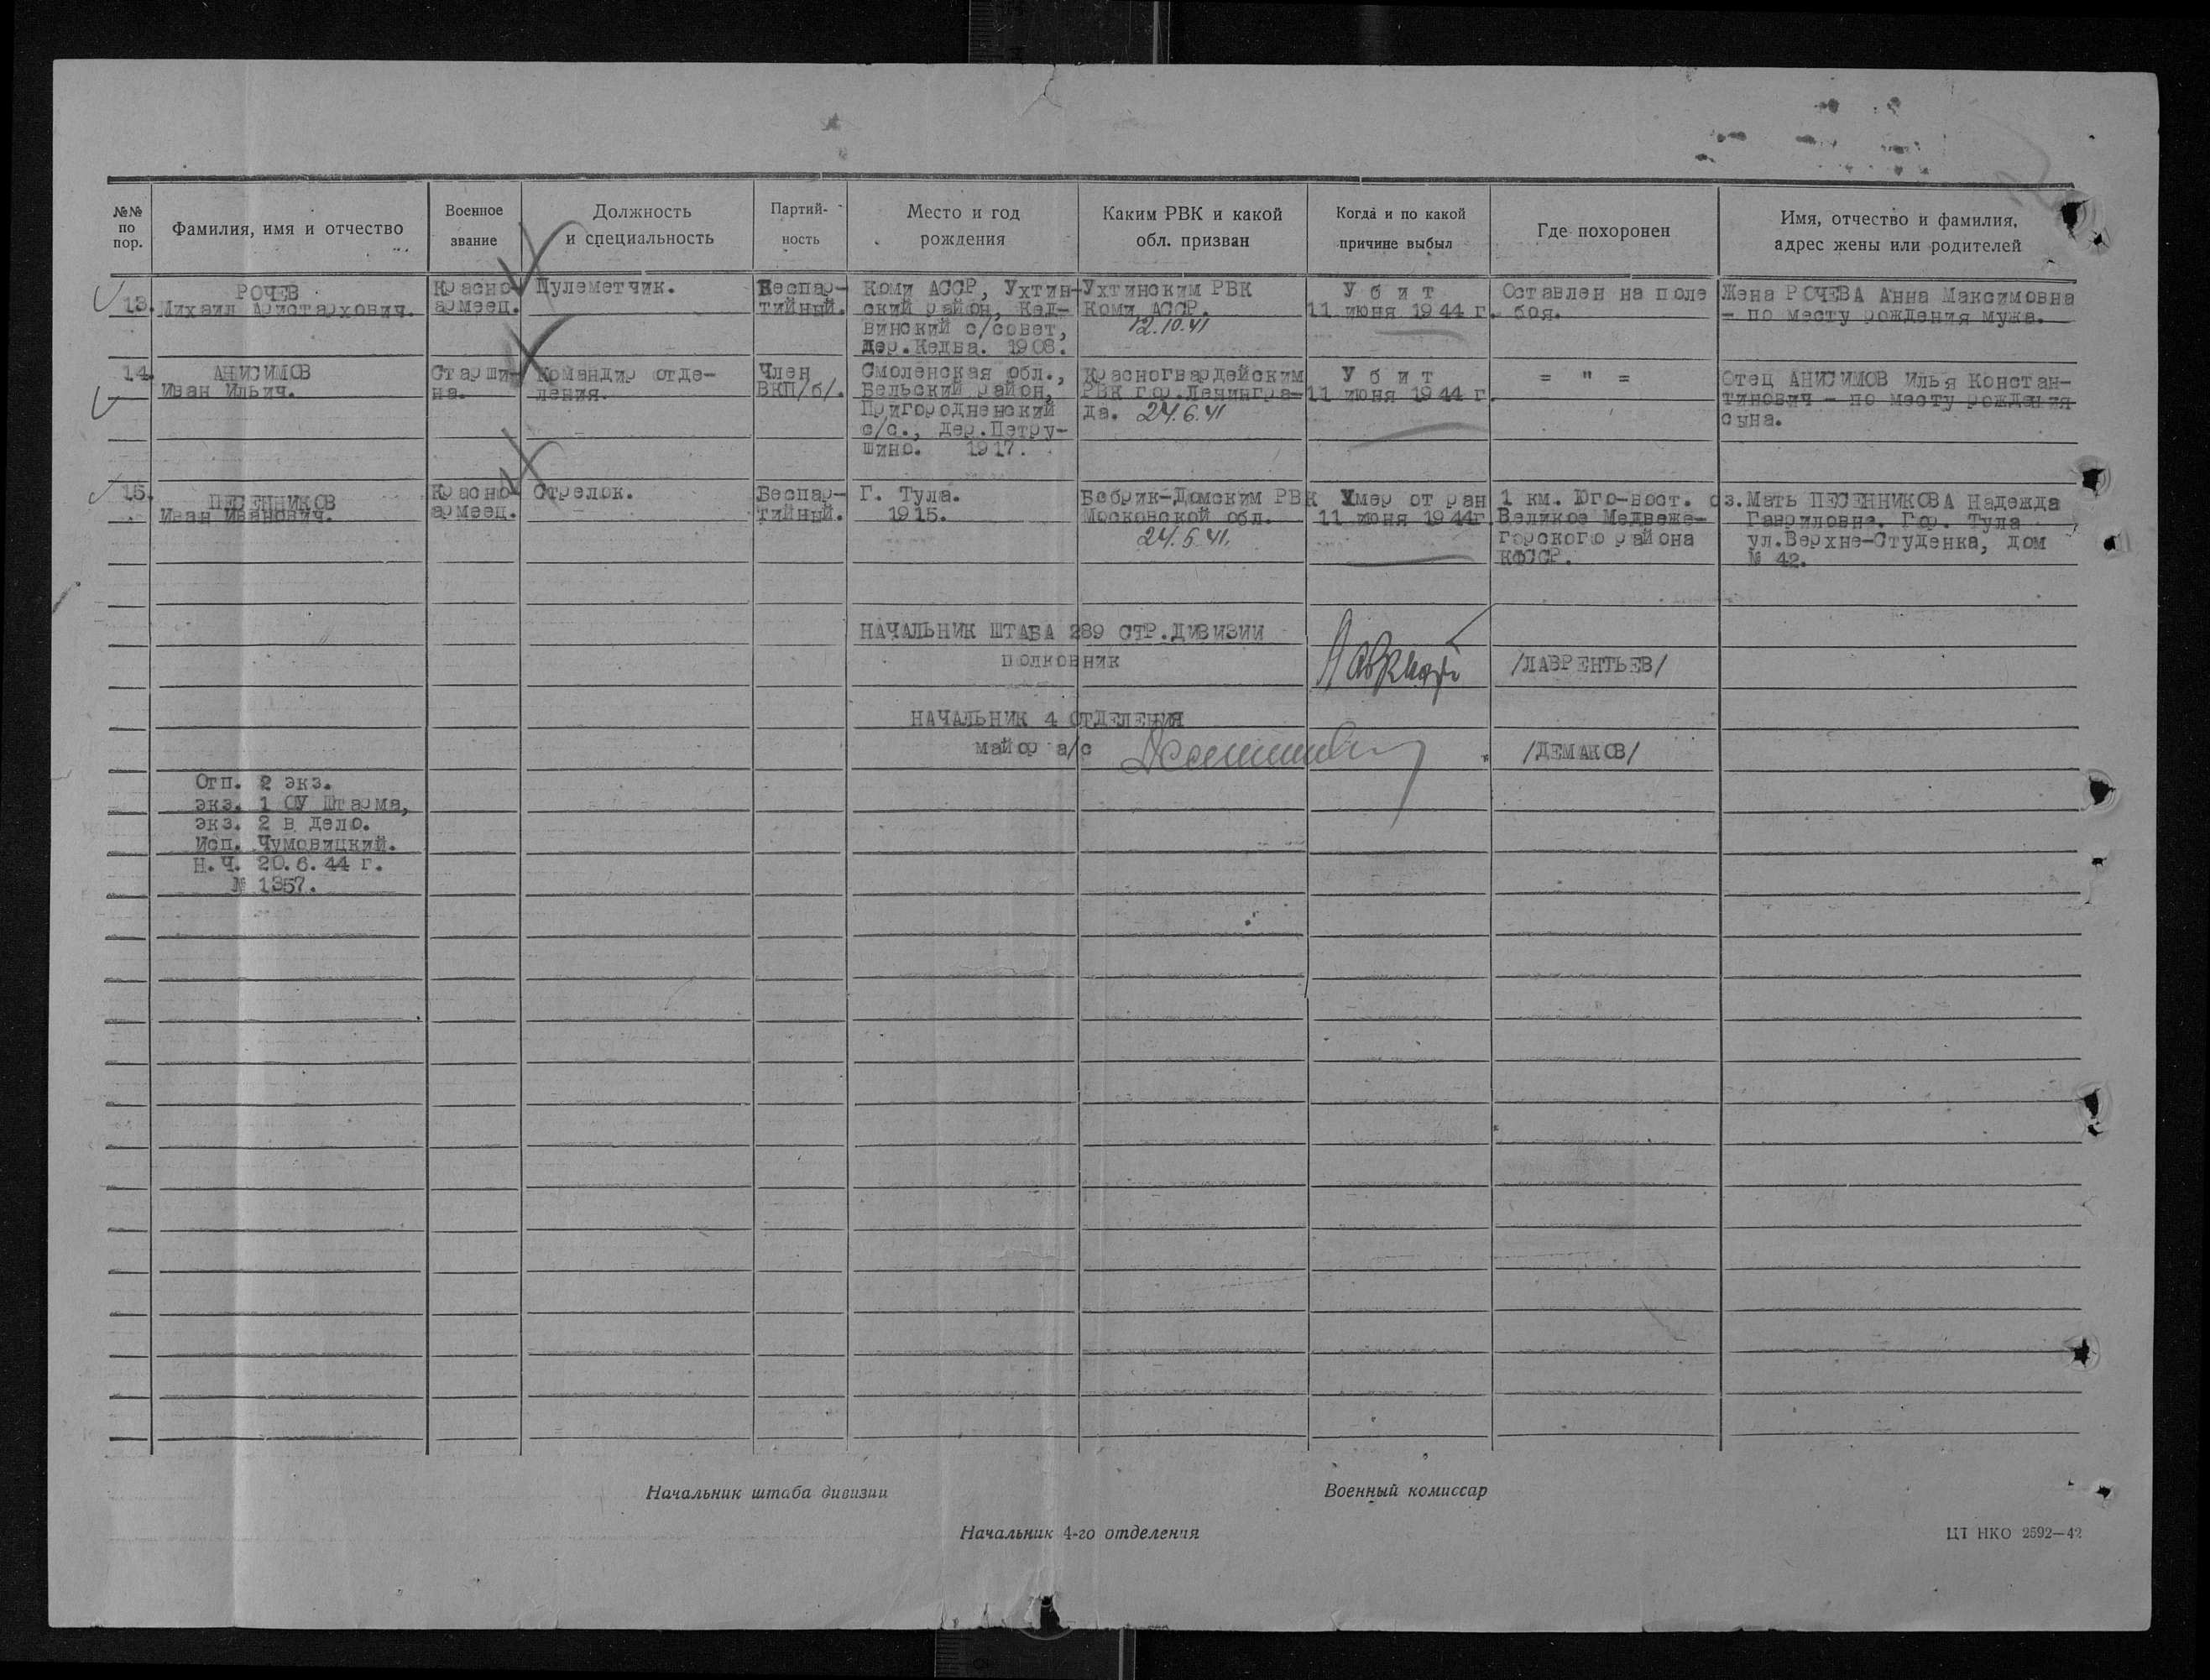 №№ по пор.
Фамилия, имя и отчество
Военное звание
Должность и специальность
Партий- ность
Место и год рождения
Каким РВК и какой обл. призван
Когда и по какой причине выбыл
Где похоронен
Имя, отчество и фамилия, адрес жены или родителей
13.
РОЧЕВ
Михаил Аристархович.
Красно-
армеец.
Пулеметчик.
Беспар-
тийный.
Коми АССР, Ухтин-
ский район, Кед-
винский с/совет,
дер.Кедва. 1908.
Ухтинским РВК
Коми АССР.
12.10.41
У б и т
11 июня 1944 г.
Оставлен на поле
боя.
Жена РОЧЕВА Анна Максимовна
- по месту рождения мужа.
14.
АНИСИМОВ
Иван Ильич.
Старши-
на.
Командир отде-
ления.
Член
ВКП/б/.
Смоленская обл.,
Бельский район,
Пригородненский
с/с., дер.Петру-
шино. 1917.
Красногвардейским
РВК гор.Ленингра-
да. 24.6.41
У б и т
11 июня 1944 г.
= " =
Отец АНИСИМОВ Илья Констан-
тинович - по месту рождения
сына.
15.
ПЕСЕННИКОВ
Иван Иванович.
Красно-
армеец.
Стрелок.
Беспар-
тийный.
Г. Тула.
1915.
Бобрик-Донским РВК
Московской обл.
24.5.41.
Умер от ран
11 июня 1944г.
1 км. Юго-вост. оз.
Великое Медвеже-
горского района
КФССР.
Мать ПЕСЕННИКОВА Надежда
Гавриловна. Гор. Тула
ул.Верхне-Студенка, дом
№ 42.
НАЧАЛЬНИК ШТАБА 289 СТР.ДИВИЗИИ
полковник
/ЛАВРЕНТЬЕВ/
НАЧАЛЬНИК 4 ОТДЕЛЕНИЯ
майор а/с
/ДЕМАКОВ/
Отп. 2 экз.
экз. 1 ОУ Штарма,
экз. 2 в дело.
Исп. Чумовицкий.
Н.Ч. 20.6.44 г.
№ 1357.
Начальник штаба дивизии
Военный комиссар
Начальник 4-го отделения
ЦТ НКО 2592—42